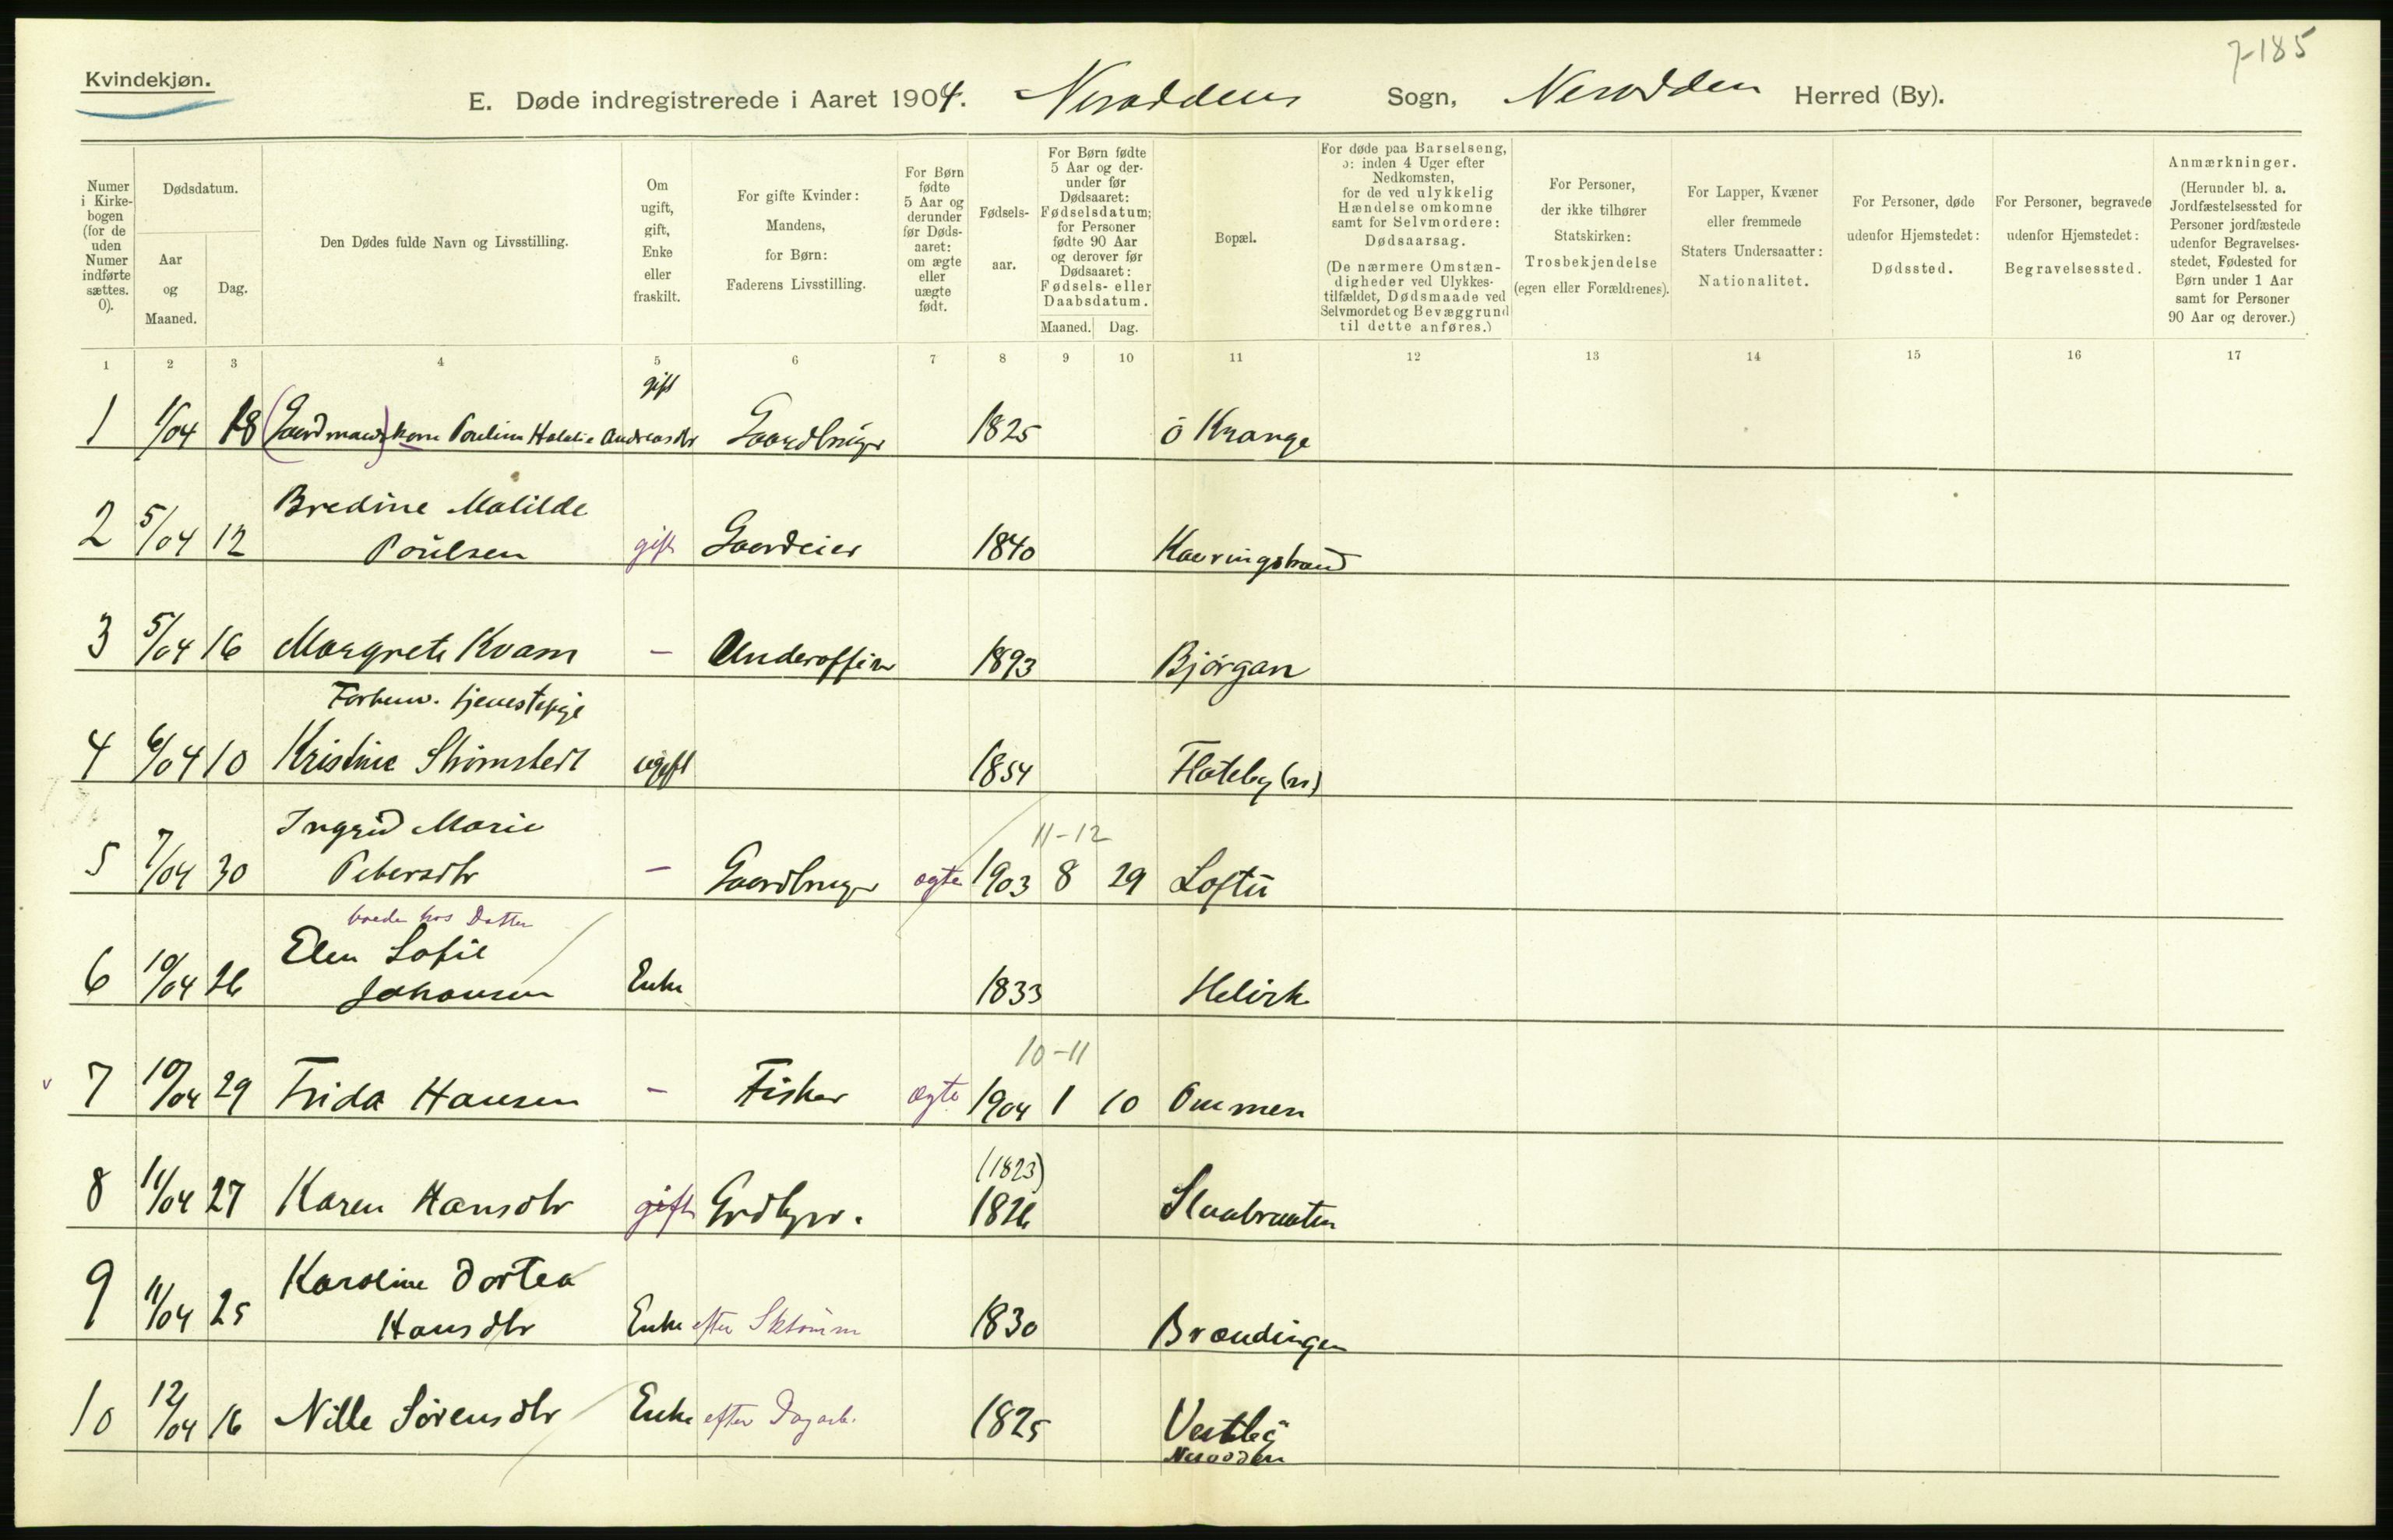 7-185
Kvindekjøn.
E. Døde indregistrerede i Aaret 1904. Nesoddens Sogn, Nesodden Herred (By).
Numer i Kirkebogen (for de uden Numer indførte sættes. 0).
Dødsdatum.
Aar og Maaned.
Dag.
Den Dødes fulde Navn og Livsstilling.
Om ugift, gift, Enke eller fraskilt.
For gifte Kvinder: Mandens, for Børn: Faderens Livsstilling.
For Børn fødte 5 Aar og derunder før Dødsaaret: om ægte eller uægte født.
Fødselsaar.
For Børn fødte 5 Aar og derunder før Dødsaaret: Fødselsdatum; for Personer fødte 90 Aar og derover før Dødsaaret: Fødsels- eller Daabsdatum.
Maaned. Dag.
Bopæl.
For døde paa Barselseng, ɔ: inden 4 Uger efter Nedkomsten, for de ved ulykkelig Hændelse omkomne samt for Selvmordere: Dødsaarsag.
(De nærmere Omstændigheder ved Ulykkestilfældet, Dødsmaade ved Selvmordet og Bevæggrund til dette anføres.)
For Personer, der ikke tilhører Statskirken: Trosbekjendelse (egen eller Forældrenes).
For Lapper, Kvæner eller fremmede Staters Undersaatter: Nationalitet.
For Personer, døde udenfor Hjemstedet: Dødssted.
For Personer, begravede udenfor Hjemstedet: Begravelsessted.
Anmærkninger.
(Herunder bl. a. Jordfæstelsessted for Personer jordfæstede udenfor Begravelsesstedet, Fødested for Børn under 1 Aar samt for Personer 90 Aar og derover.)
1 2 3 4 5 6 7 8 9 10 11 12 13 14 15 16 17
gift
1 1/04 18 (Gaardmands) kone Pauline Andreasdtr Gaardbruger 1825 Ö Krange
Bredine Matilde
2 5/04 12 Poulsen gift Gaardeier 1840 Kavringstrand
3 5/04 16 Margrete Kvam – Underoffic 1893 Björgan
Forhenv. tjenestepige
4 6/04 10 Kristine Strömstedt ugift 1854 Flateby (n)
Ingrid Marie 11-12
5 7/04 30 Petersdtr – Gaardbruger ægte 1903 8 29 Loftu
boede hos Datter
Elen Sofie
6 10/04 26 Johansen Enke 1833 Helvik
10-11
7 10/04 29 Frida Hansen – Fisker ægte 1904 1 10 Ommen
(1823)
8 11/04 27 Karen Hansdtr gift 1826 Skaabraaten
Karoline Dortea
9 11/04 25 Hansdtr Enke efter 1830 Brændingen
10 12/04 16 Nille Sörensdtr Enke efter Dagarb. 1825 Vestby
Nesodden